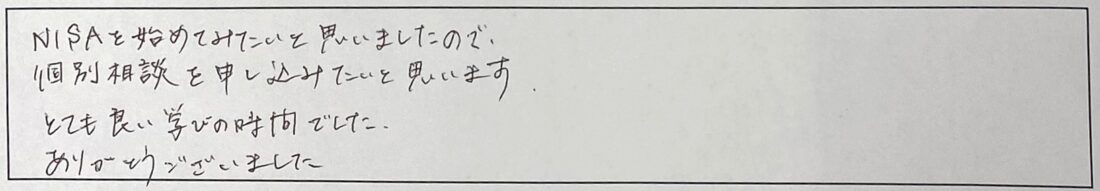 NISAを始めてみたいと思いましたので、
個別相談を申し込みたいと思います.
とても良い学びの時間でした.
ありがとうございました